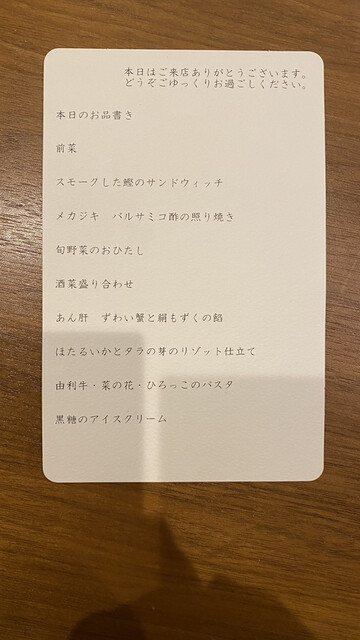 本日はご来店ありがとうございます。
どうぞごゆっくりお過ごしください。
本日のお品書き
前菜
スモークした鰹のサンドウィッチ
メカジキ　バルサミコ酢の照り焼き
旬野菜のおひたし
酒菜盛り合わせ
あん肝　ずわい蟹と絹もずくの餡
ほたるいかとタラの芽のリゾット仕立て
由利牛・菜の花・ひろっこのパスタ
黒糖のアイスクリーム